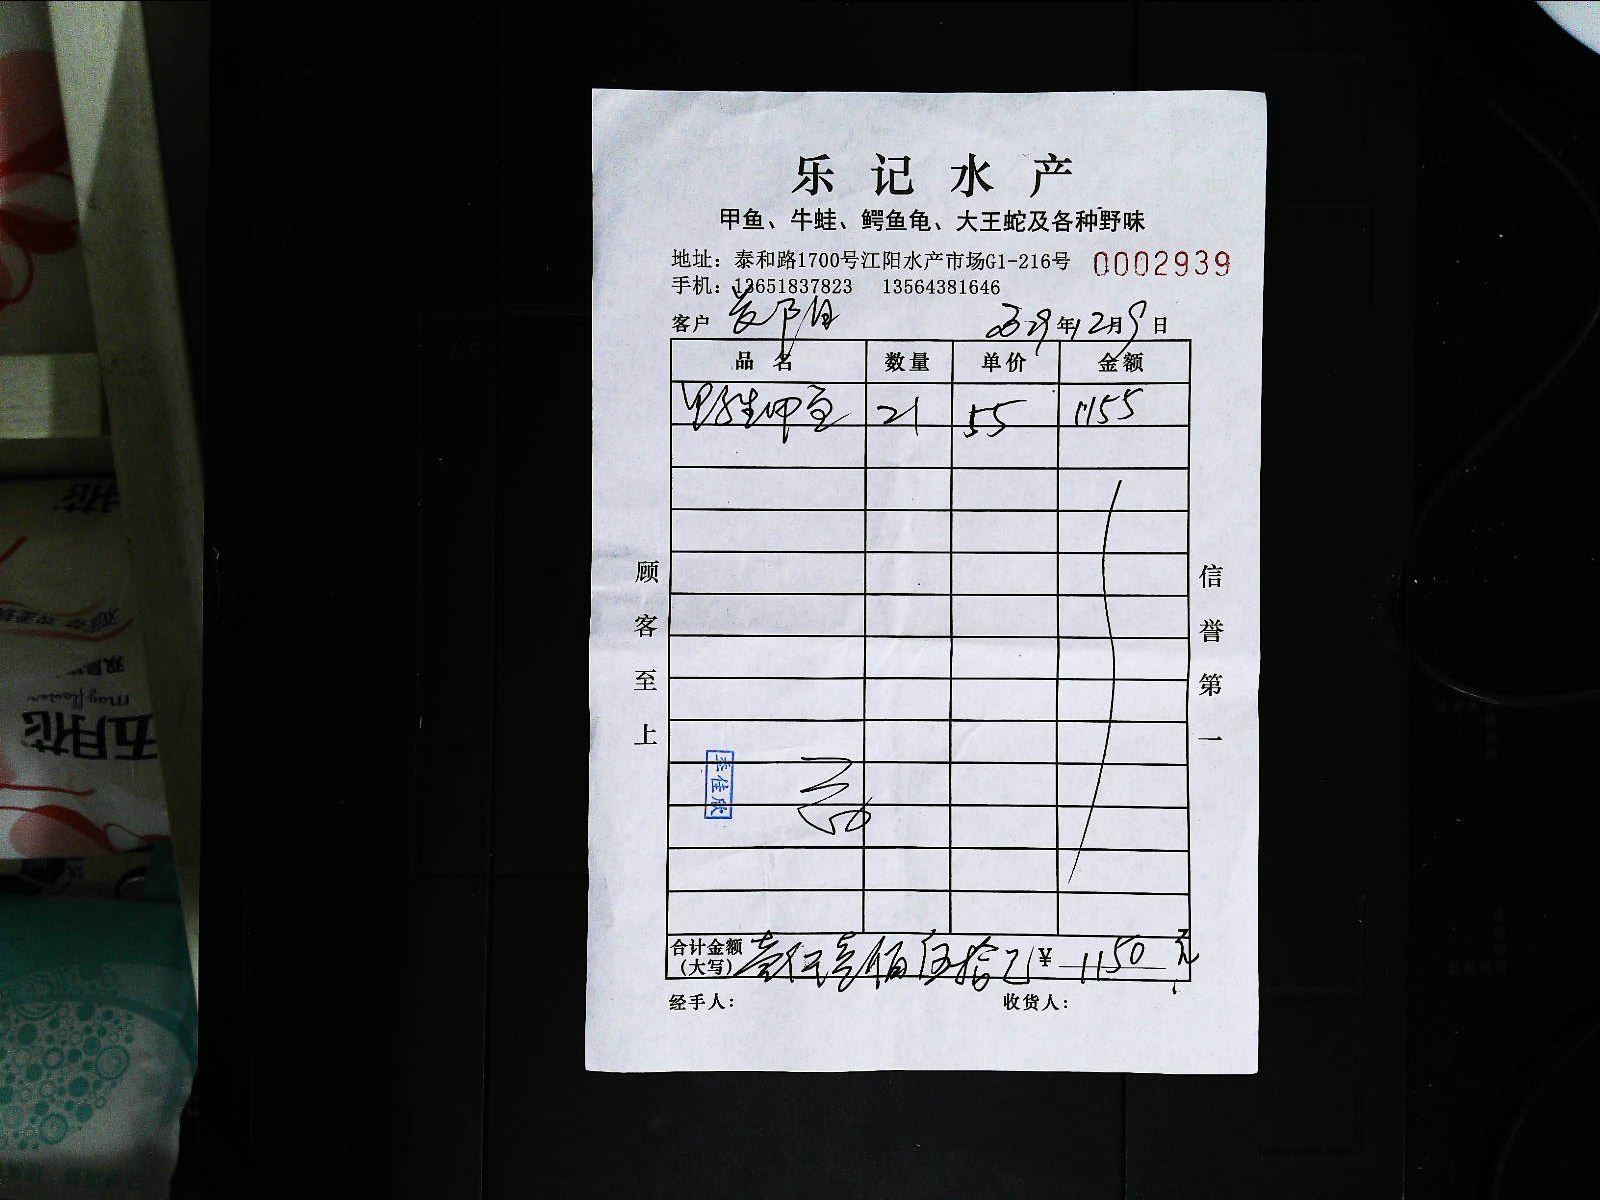 乐记水产
甲鱼、牛蛙、鳄鱼龟、大王蛇及各种野味
地址：泰和路1700号江阳水产市场G1-216号 0002939
手机：13651837823 13564381646
客户 年12月9日
品名 数量 单价 金额
野生甲鱼 21 55 1155
顾客至上
信誉第一
李佳欣
合计金额(大写) 壹仟壹佰伍拾 ¥ 1150 元
经手人： 收货人：
五月花
Mayflower